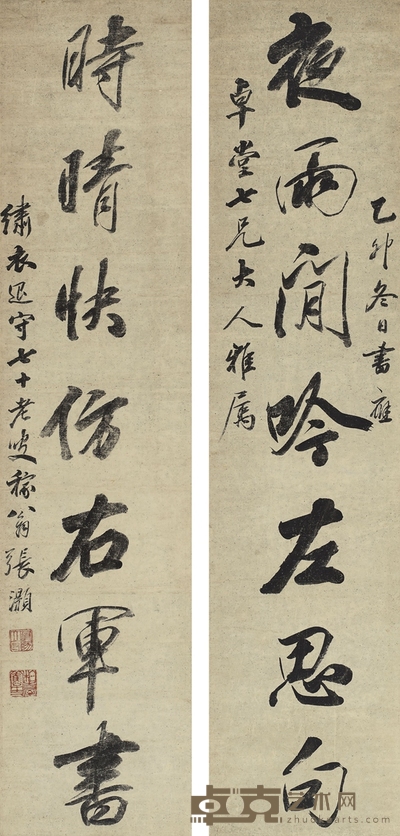 乙卯冬日書應
卓堂七兄大人雅屬
夜雨閒吟左思句
時晴快仿右軍書
繡衣退守七十老叟稼翁張灝
卓克艺术网
zhuokearts.com